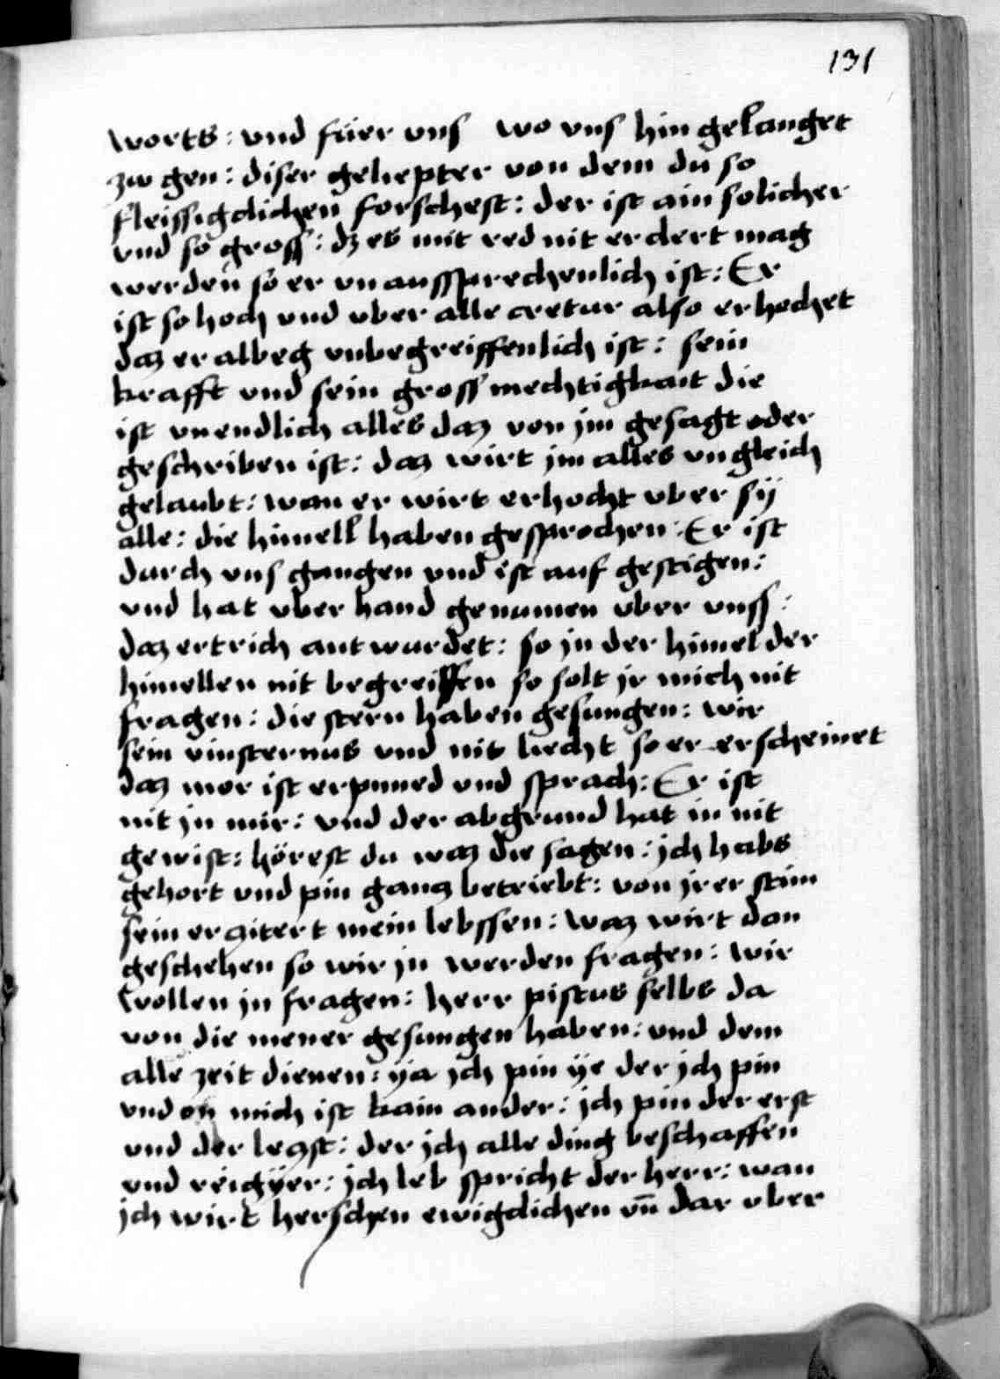 131
worts : und füer uns wo uns hin gelanget
zw gen : diser geliepter von dem du so
fleissigclichen forschest : der ist ain solicher
und so gross : dz es mit red nit erclert mag
werden so er unaussprechenlich ist : Er
ist so hoch und uber alle cretur also erhochet
daz er albeg unbegreiffenlich ist : sein
krafft und sein grossmechtigkait die
ist unendlich alles daz von jm gesagt oder
geschriben ist : daz wirt jm alles ungleich
gelaubt : wan er wirt erhocht uber sÿ
alle : die himell haben gesprochen : Er ist
durch uns gangen und ist auf gestigen :
und hat uber hand genumen uber unss :
daz ertrich antwurdet : so jn der himel der
himellen nit begreiffen so solt jr mich nit
fragen : die stern haben gesungen : wir
sein vinsternus und nit liecht so er erscheinet
daz mer ist erpuned und sprach : Er ist
nit jn mir : und der abgrund hat in nit
gewist : hörest du waz die sagen : jch habs
gehort und pin ganz betriebt : von jrer stim
sein erzitert mein lebssen : waz wirt dan
geschehen so wir jn werden fragen : wir
wollen jn fragen : herr pistus selbs da
von die mener gesungen haben : und dem
alle zeit dienen : ÿa jch pin ÿe der jch pin
und on mich ist kain ander : jch pin der erst
und der lezst : der jch alle ding beschaffen
und reigÿer : jch leb spricht der herr : wan
jch wirt herschen ewigclichen uñ dar uber